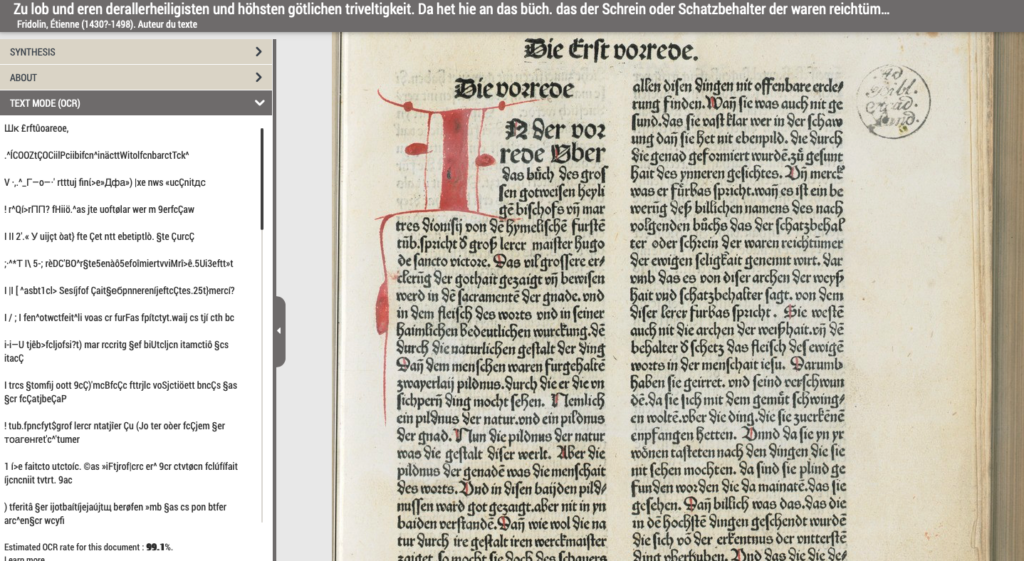 Zu lob und eren derallerheiligisten und höhsten götlichen triveltigkeit. Da het hie an das büch. das der Schrein oder Schatzbehalter der waren reichtüm...
Fridolin, Étienne (1430?-1498). Auteur du texte
SYNTHESIS
ABOUT
TEXT MODE (OCR)
Шк £rftûoareoe,
.^ÍCOOZtÇOCiilPciibifcn^inäcttWitolfcnbarctTck^
V ·,.^_Г—о—·' rtttuj finí>e»Дфа») |хе nws «ucÇnitдс
! r^Qí>rГПТ? fHiiö.^as jte uoftølar wer m 9erfcÇaw
I II 2'.« У uijçt òat} fte Çet ntt ebetiptlò. §te ÇurcÇ
;·^*'T I\ 5-; rèDC'BO^r§te5enàô5efolmiertvviMrl>ê.5Ui3eftt»t
I |l [ ^asbt1cl> Sesíjfof Çait§eбpnnereníjeftcÇtes.25t)mercí?
I / ; I fen^otwctfeit^li voas cr furFas fpítctyt.waij cs tjí cth bc
i-i—U tjêb>fcljofsi?t) mar rccritg §ef biUtcljcn itamctiô §cs
itacÇ
I trcs §tomfij oott 9cÇ)'mcBfcÇc fttrjlc voSjctiöett bncÇs §as
§cr fcÇatjbeÇaP
! tub.fpncfyt$grof lercr ntatjîer Çu (Jo ter oòer fcÇjem §er
тоагенrеt'с^'tumer
1 í>e faitcto utctoíc. ©as »iFtjrof|crc er^ 9cr ctvtøcn fclúfífait
íjcncniit tvtrt. 9ac
) tferitâ §er ijotbaítíjejaújtщ berøfen »mb §as cs pon btfer
arc^en§cr wcyfi
Estimated OCR rate for this document : 99.1%.
Learn more
Die Erst vorrede.
Die vorrede
IN der vor
rede Uber
das bůch des groſ
ſen gotweiſen heyli
gē biſchofs vn̄ mar
tres dioniſij von dē hymeliſchē furſtē
tůb.ſpricht d̕ groß lerer maiſter hugo
de ſancto victore. Das vil gröſſere er⸗
clerūg der gothait gezaigt vn̄ bewiſen
werd in dē ſacramentē der gnade. vnd
in dem fleiſch des worts vnd in ſeiner
haimlichen bedeutlichen wurckung.dē
durch die naturlichen geſtalt der ding
Dan̄ dem menſchen waren furgehaltē
zwayerlaij pildnus.durch die er die vn
ſichpern̄ ding mocht ſehen. Nemlich
ein pildnus der natur.vnd ein pildnus
der gnad. Nun die pildnus der natur
was die geſtalt diſer werlt. Aber die
pildnus der genadē was die menſchait
des worts. Vnd in diſen baijden pild⸗
nuſſen ward got gezaigt.aber nit in yn
baiden verſtandē. Dan̄ wie wol die na
tur durch ire geſtalt iren werckmaiſter
zaiget.ſo mocht ſie doch des ſchauers
allen diſen dingen nit offenbare ercle⸗
rung finden. Wan̄ ſie was auch nit ge
ſund.das ſie vaſt klar wer in der ſchaw
ung dan̄ ſie het nit ebenpild. die durch
die genad geformiert wurdē.zů geſunt
hait des ynneren geſichtes. Vn̄ merck
was er fürbas ſpricht.wan̄ es iſt ein be
werūg deß billichen namens des nach
volgenden bůchs das der ſchatzbehal
ter oder ſchrein der waren reichtümer
der ewigen ſeligkait genennt wirt. dar
vmb das es von diſer archen der weyß
hait vnd ſchatzbehalter ſagt. von dem
diſer lerer furbas ſpricht. Sie weſtē
auch nit die archen der weißhait.vn̄ dē
behalter d̕ ſchetz das fleiſch des ewigē
worts in der menſchait ieſu. Darumb
haben ſie geirret. vnd ſeind verſchwun
dē.da ſie ſich mit dem gemüt ſchwing⸗
en woltē.vber die ding.die ſie zuerkēnē
enpfangen hetten. Vnnd da ſie yn yr
wōnen taſteten nach den dingen die ſie
nit ſehen mochten. da ſind ſie plind ge
funden worden die da mainatē.das ſie
geſehen. Dan̄ billich was das.das die
in dē höchſtē dingen geſchendt wurdē
die ſich vō der erkentnus der vntterſtē
ding vberhuben. Vnd das die die de⸗